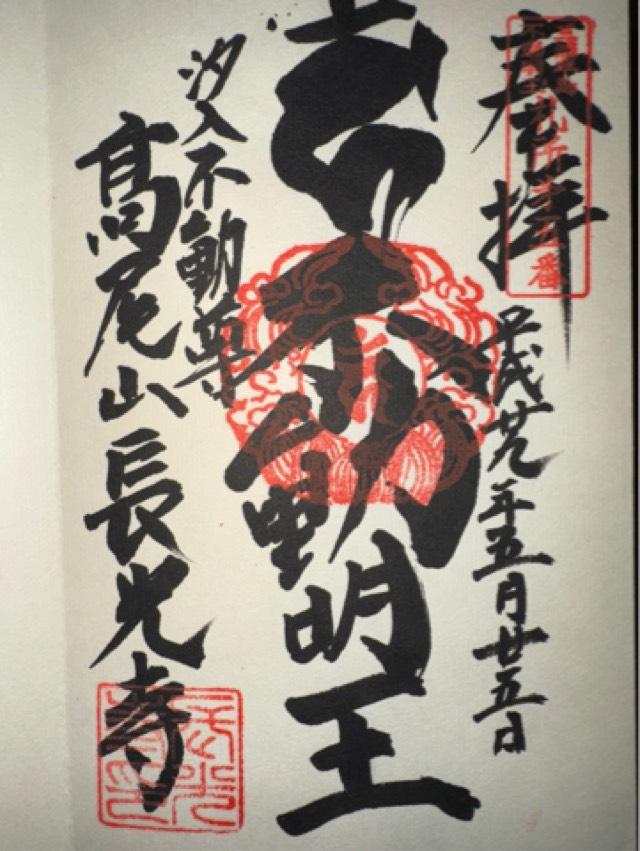 奉拝
平成廿九年五月廿五日
不動明王
汐入不動尊
高尾山長光寺